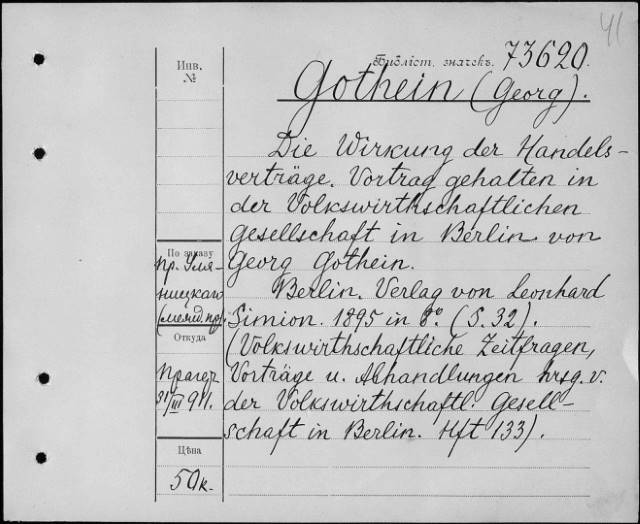 41
Библіот. значекъ. 73620.
Инв.
№
Gothein (Georg).
Die Wirkung der Handels-
verträge. Vortrag gehalten in
der Volkswirthschaftlichen
Gesellschaft in Berlin von
Georg Gothein.
Berlin. Verlag von Leonhard
Simion. 1895 in 8°. (S. 32).
(Volkswirthschaftliche Zeitfragen,
Vorträge u. Abhandlungen hrsg. v.
der Volkswirthschaftl. Gesell-
schaft in Berlin. Hft 133).
По заказу
пр. Уля-
ницкаго
Откуда
Прагеръ
31/III 911.
Цѣна
50 к.